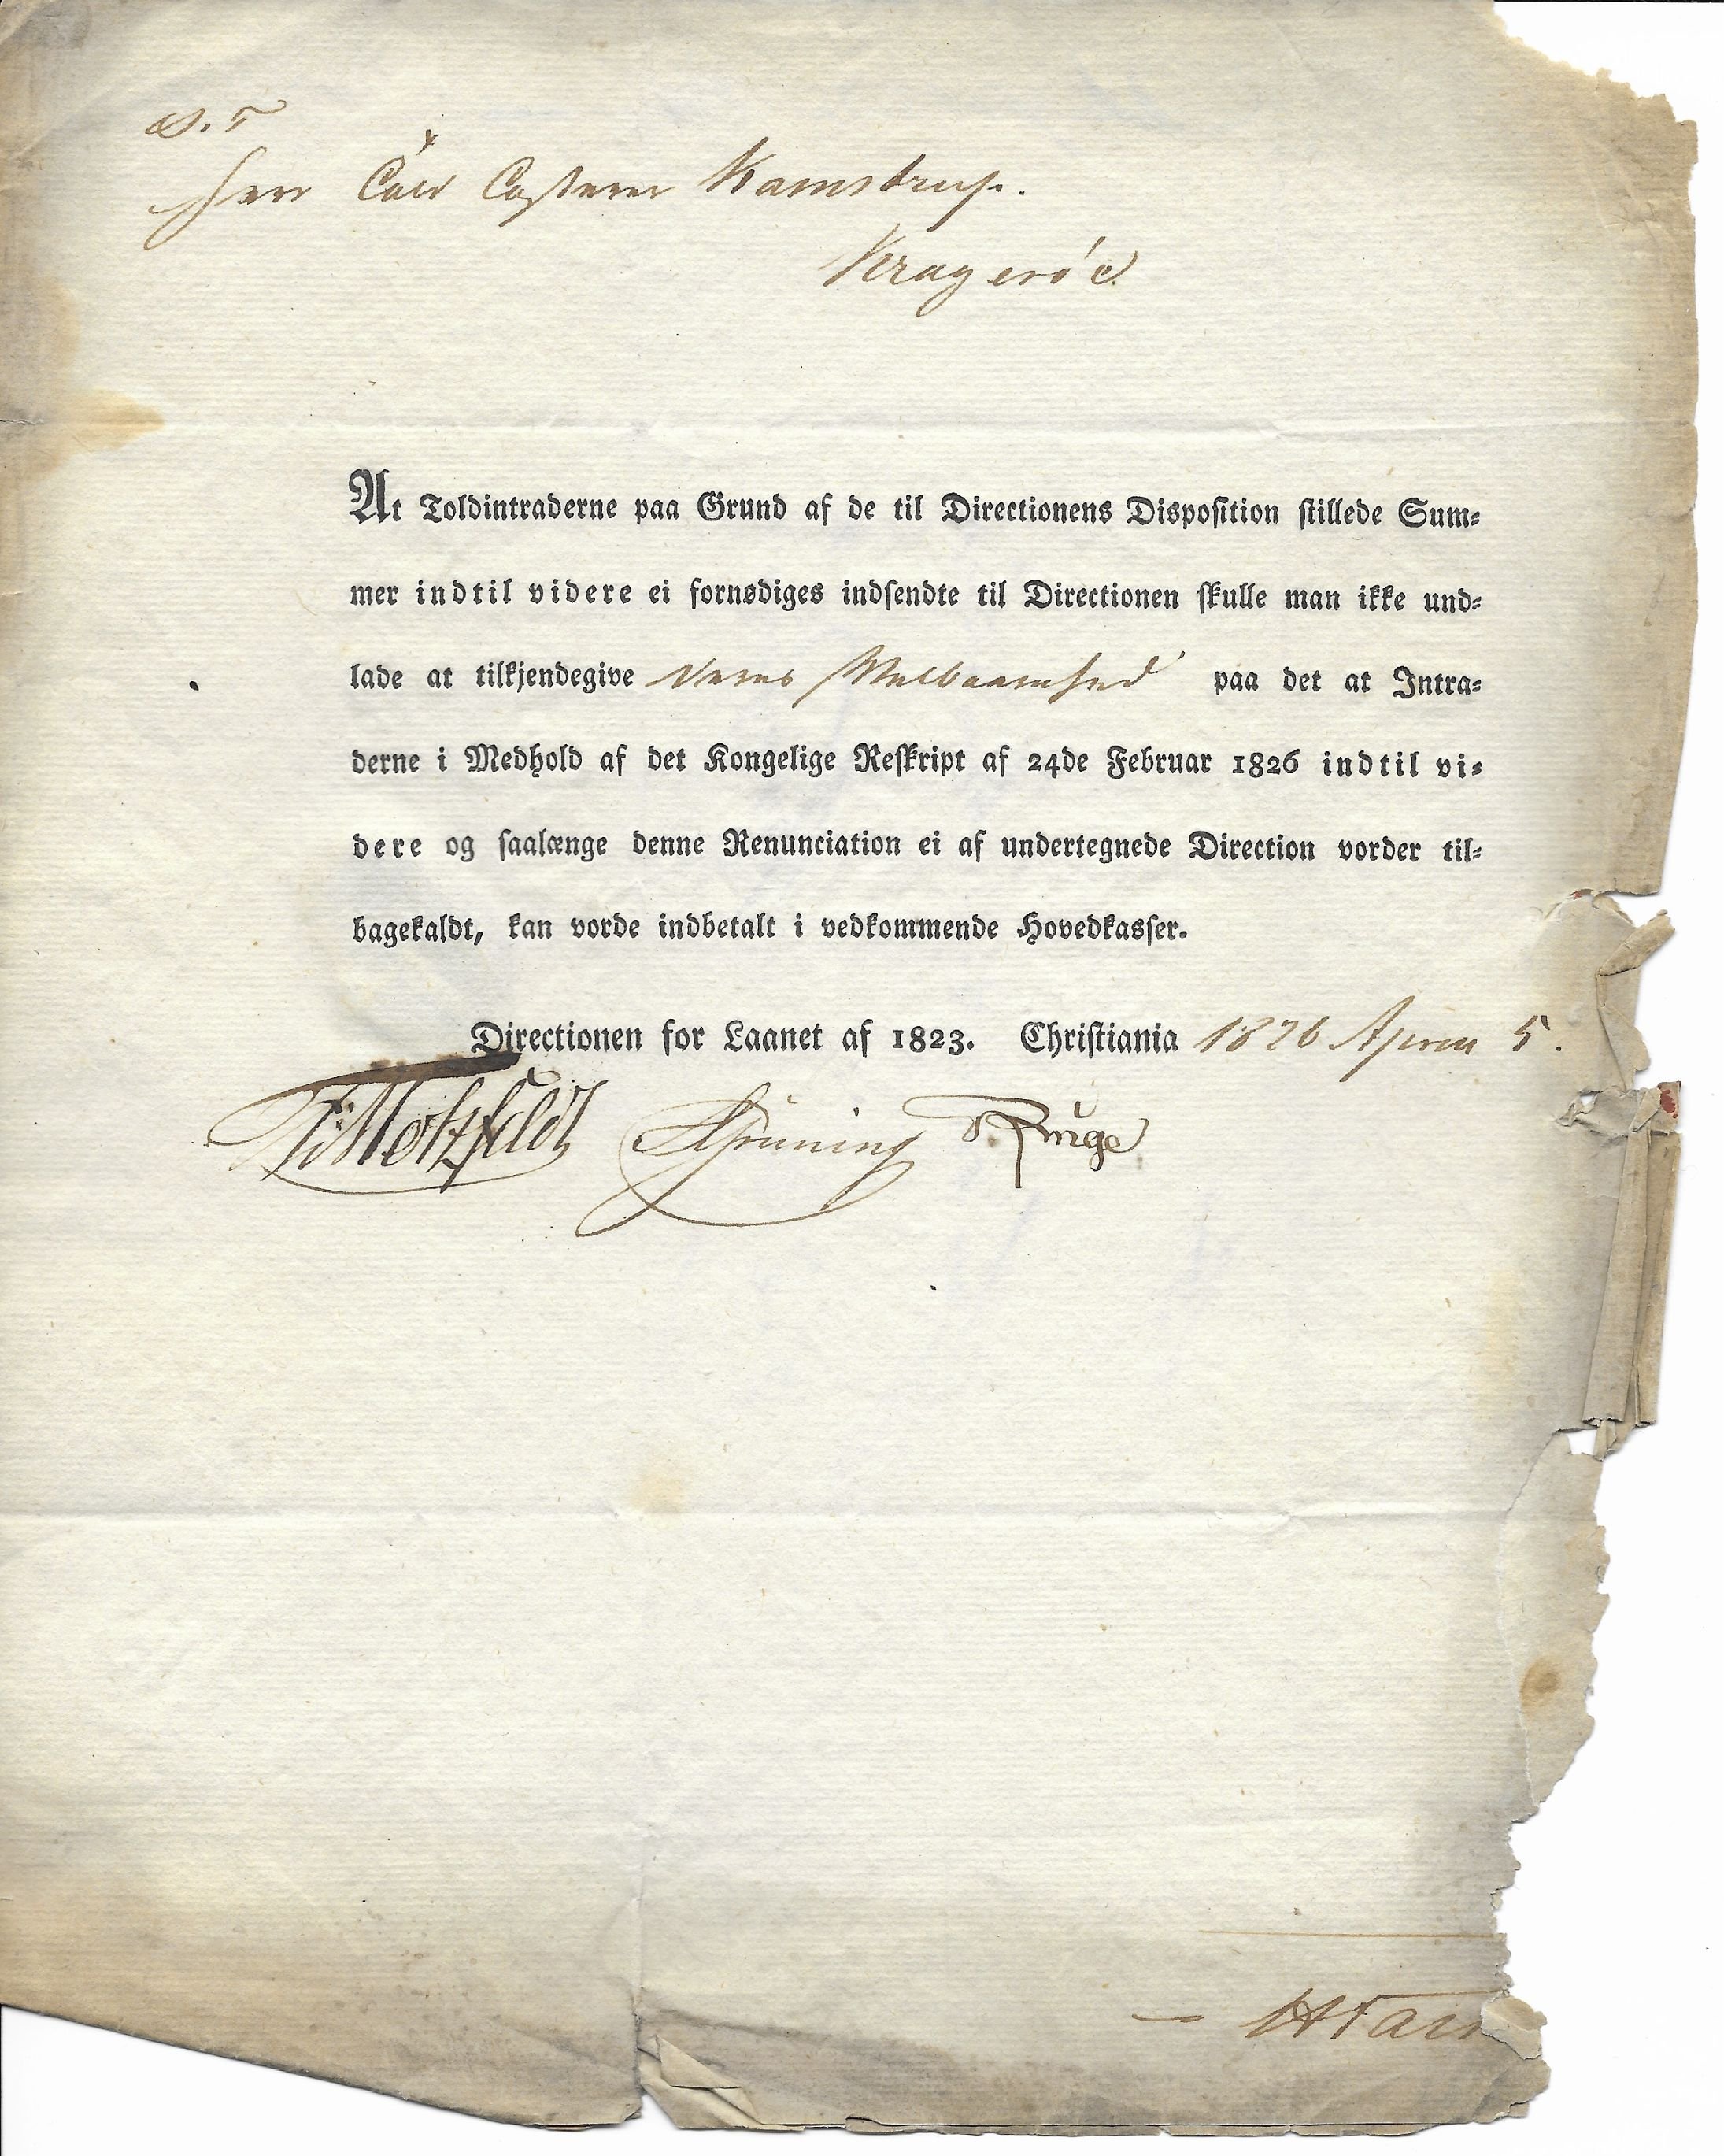 S. T
Herr Told Casserer Kamstrup.
Kragerøe
At Toldintraderne paa Grund af de til Directionens Disposition stillede Sum-
mer indtil videre ei fornødiges indsendte til Directionen skulle man ikke und-
lade at tilkjendegive Deres Velbaarenhed paa det at Intra-
derne i Medhold af det Kongelige Reskript af 24de Februar 1826 indtil vi-
dere og saalænge denne Renunciation ei af undertegnede Direction vorder til-
bagekaldt, kan vorde indbetalt i vedkommende Hovedkasser.
Directionen for Laanet af 1823. Christiania 1826 April 5.
Motzfeldt Grüning Runge